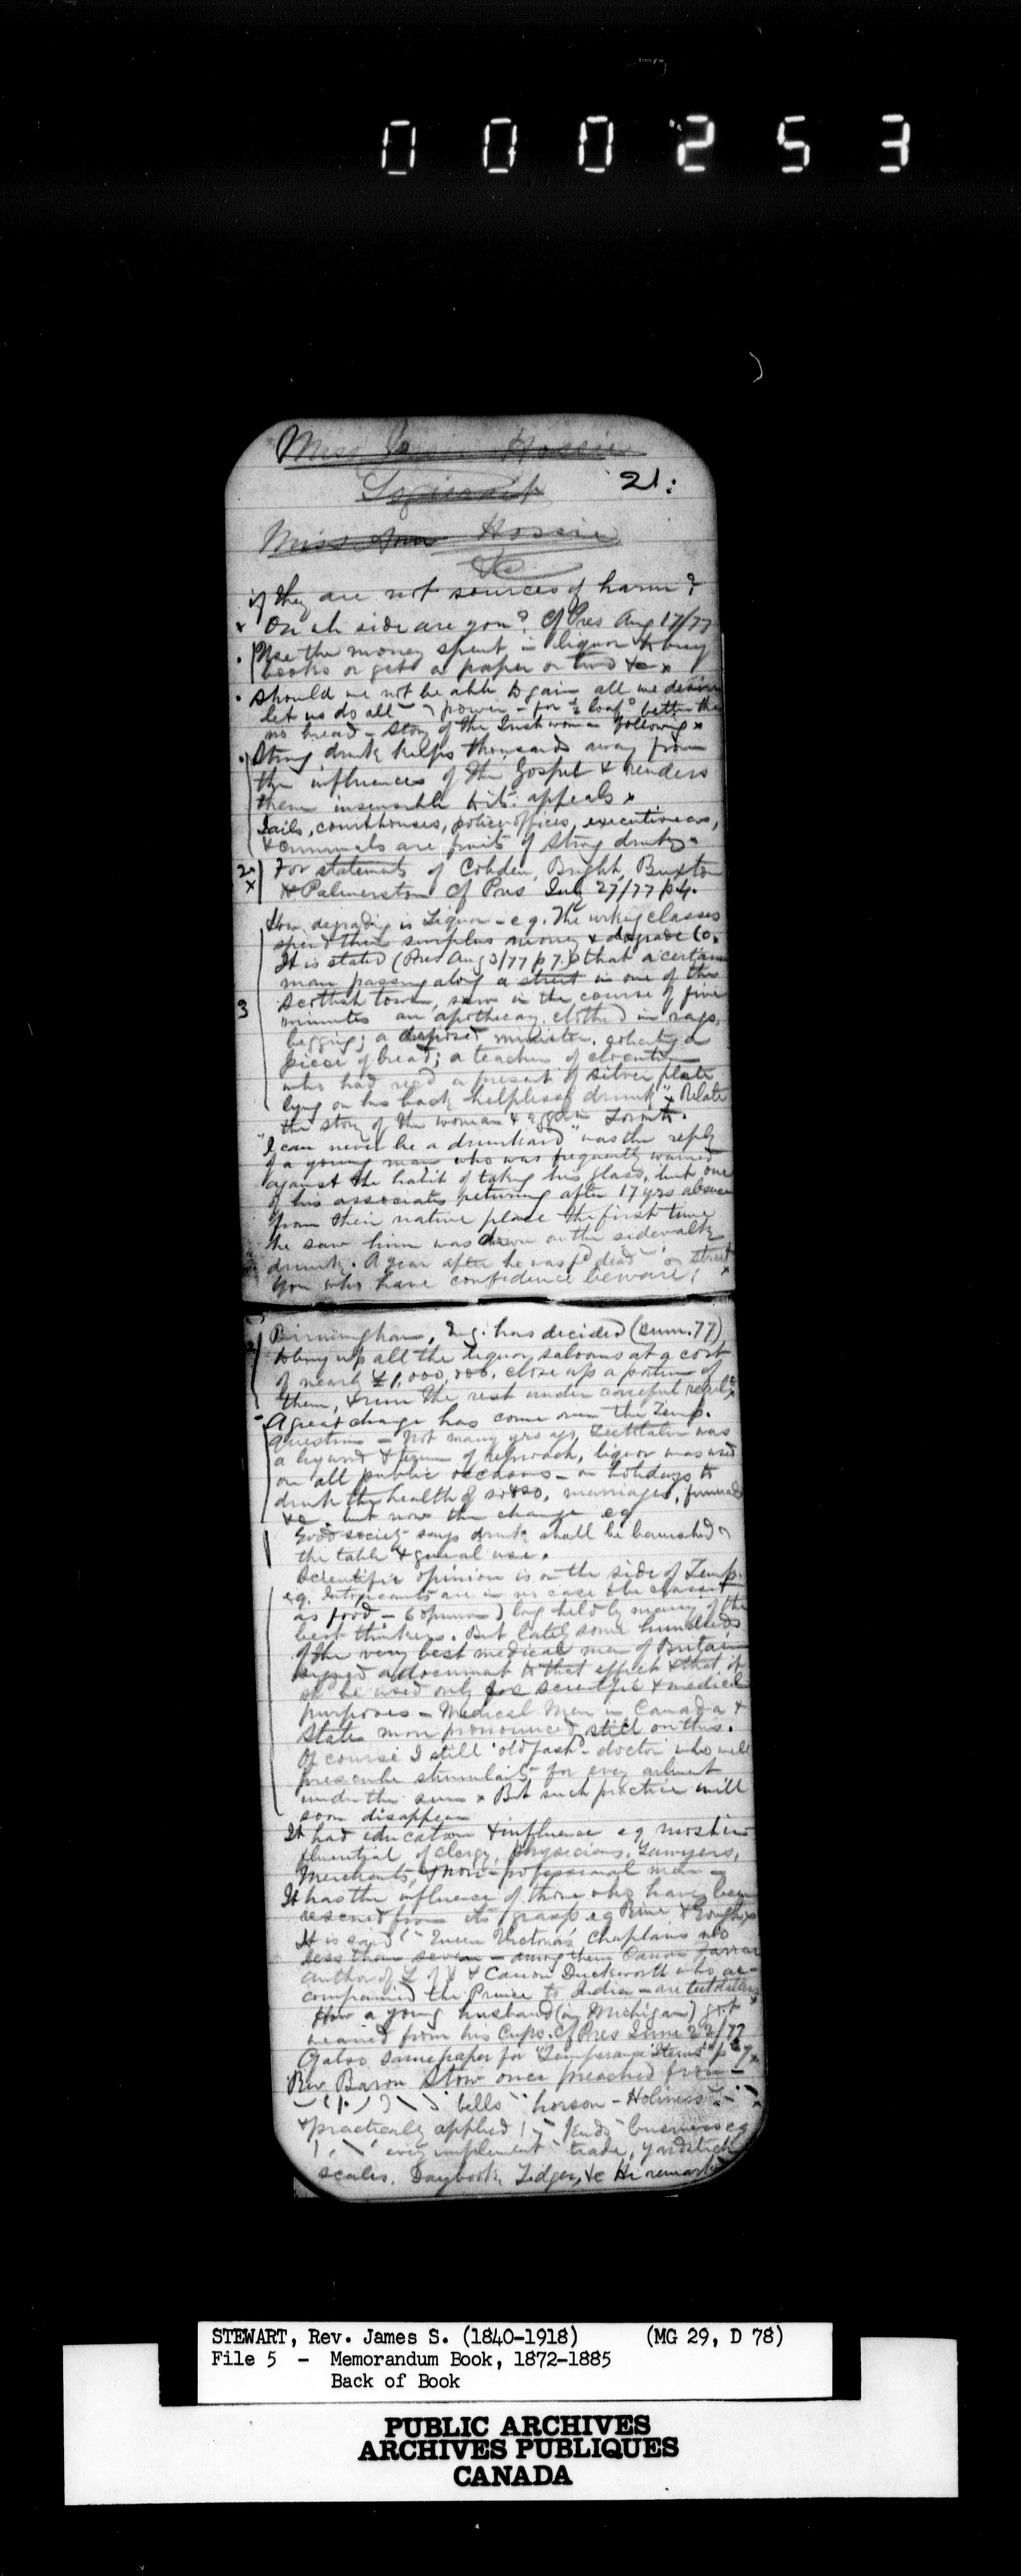 000253
Miss Hossie
21:
Miss Ann Hossie
&c
if they are not sources of harm?
x On wh side are you? Cf Pres Aug 17/77
Use the money spent in liquor & buy
books or get a paper or two &c x
Should we not be able to gain all we desire
let us do all power - for ½ loaf better than
no bread - Story of the Irish woman following x
Strong drink helps thousands away from
the influences of the Gospel & renders
them insensible to its appeals x
Jails, courthouses, police offices, executioners,
& criminals are fruits of strong drink x
2 x For statements of Cobden, Bright, Buxton
& Palmerston Cf Pres July 27/77 p 4.
How degrading is Liquor - e g. The wrkg classes
spend their surplus money & degrade
It is stated (Pres Aug 3/77 p 7) that a certain
man passing along a street in one of the
3 Scottish towns, saw in the course of five
minutes "an apothecary clothed in rags,
begging; a deposed minister, soliciting a
piece of bread; a teacher of elocution
who had recd a present of silver plate
lying on his back helplessly drunk" x Relate
the story of the woman & eggs in Toronto.
"I can never be a drunkard" was the reply
of a young man who was frequently warned
against the habit of taking his glass, but one
of his associates returning after 17 yrs absence
from their native place the first time
he saw him was down on the sidewalk
drunk. A year after he was fd dead on street
You who have confidence beware! x
Birmingham, Eng. has decided (Summ. 77)
to buy up all the liquor saloons at a cost
of nearly £1,000,000, close up a portion of
them, & run the rest under careful regulns
A great change has come over the Temp.
question - Not many yrs ago, Teetotaler was
a byword & term of reproach, liquor was used
on all public occasions - on holidays to
drink the health of so & so, marriages, funerals
&c but now the change eg
Good society says drink shall be banished
the table & general use.
Scientific opinion is on the side of Temp.
eg. Intoxicants are in no case to be classed
as food - opinion long held by many of the
best thinkers. But lately some hundreds
of the very best medical men of Britain
signed a document to that effect & that it
shd be used only for scientific & medical
purposes - Medical Men in Canada &
States more pronounced still on this.
Of course still 'old fash' doctor who will
prescribe stimulants for every ailment
under the sun x But such practice will
soon disappear
It had education & influence eg most in-
fluential of clergy, physicians, Lawyers,
Merchants, & non-professional men -
It has the influence of those who have been
rescued from its grasp eg Rine & Gough x
It is said Queen Victoria's Chaplains no
less than seven - among them Canon Farrar
author of L of X & Canon Duckworth who ac-
companied the Prince to India - are teetotalers
How a young husband (in Michigan) got
weaned from his Cups. Cf Pres June 22/77
Cf also same paper for "Temperance Items" p 7 x
Rev. Baron Stow once preached from -
bells horses - Holiness
& practically applied kinds business eg
every implement trade, yardstick
scales, Daybook, Ledger, &c He remarked
STEWART, Rev. James S. (1840-1918) (MG 29, D 78)
File 5 - Memorandum Book, 1872-1885
Back of Book
PUBLIC ARCHIVES
ARCHIVES PUBLIQUES
CANADA